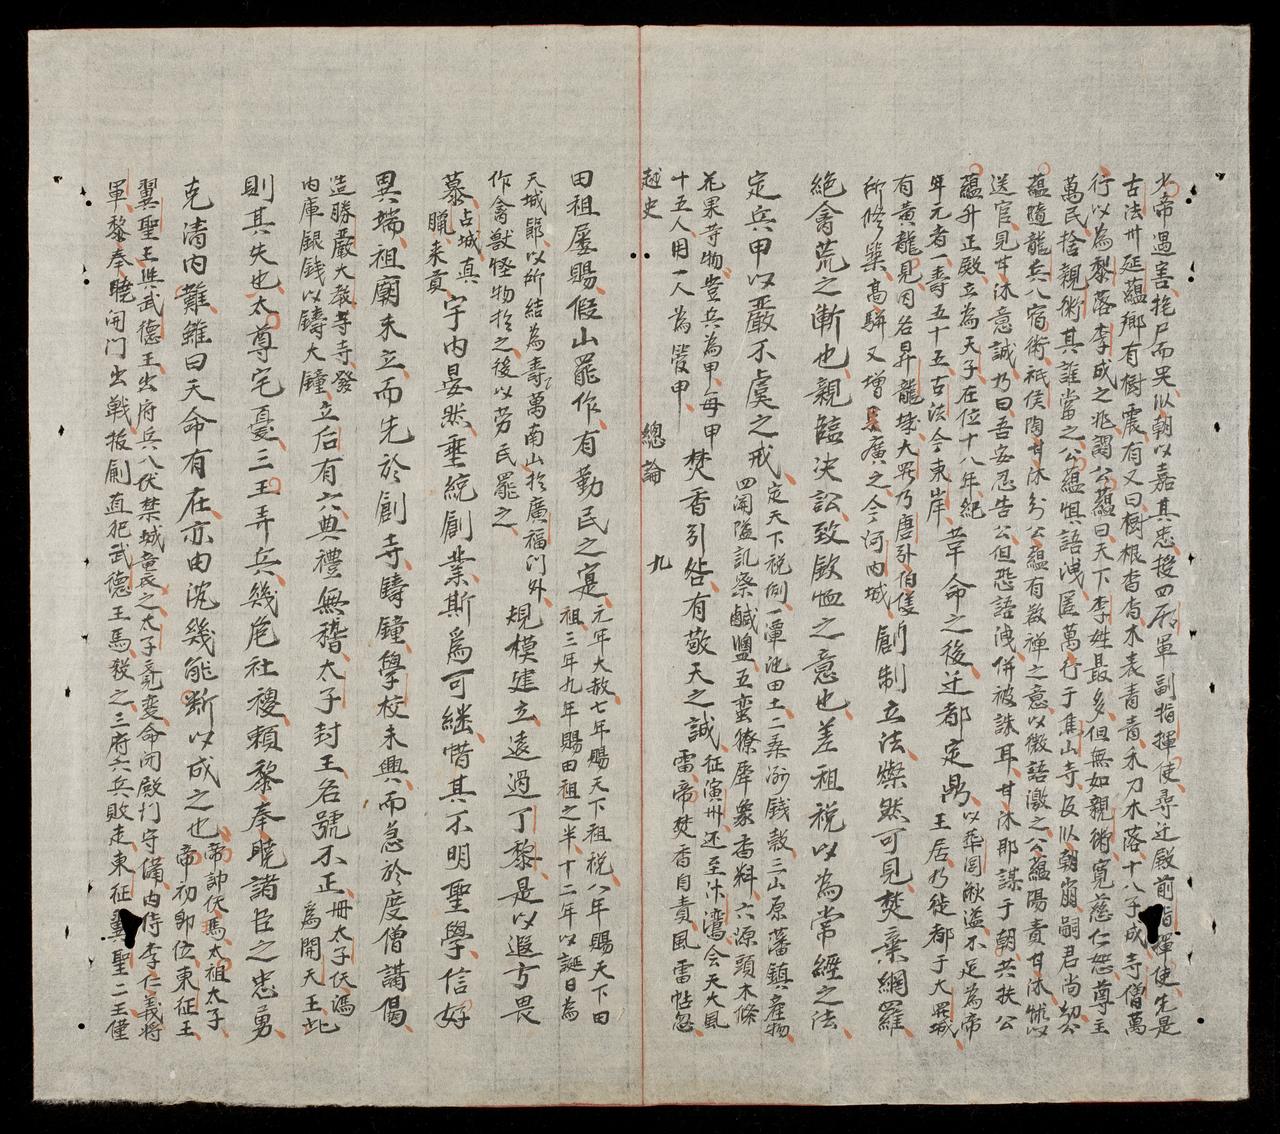 少帝過害抱尸而哭以朝以嘉其忠授四廂軍副指揮使尋迁殿前指揮使先是
古法州延蘊鄉有樹震有文曰樹根杳杳木表青青禾刀木落十八子成寺僧萬
行以為黎落李成之兆謂公蘊曰天下李姓最多但無如親衛寬慈仁恕尊主
萬民捨親衛其誰當之公蘊惧語洩匿萬行于焦山寺及臥朝崩嗣君尚幼公
蘊隨龍兵入宿衛祇侯陶甘沐知公蘊有数禅之意以微語激之公蘊陽責甘沐
送官見甘沐意誠乃曰吾安忍告公但恐語洩併被誅耳甘沐耶謀于朝共扶公
蘊升正殿立為天子在位十八年紀
年元者一壽五十五古法今東岸
革命之後迁都定鼎
以華閭湫溢不足為帝
王居乃徙都于大羅城
有黄龍見因名昇龍城大羅乃唐張伯儀
所修築高駢又增廣之今河内城
創制立法燦然可見焚棄網羅
絶禽荒之漸也親臨決訟致欽恤之意也差祖稅以為常經之法
定兵甲以嚴不虞之戒
定天下稅例一潭池田土二桑洲錢穀三山原藩鎮産物
四關隘訊察鹹鹽五蛮獠犀象香料六源頭木條
花果等物豈兵為甲每甲
十五人用一人為管甲
焚香引咎有敬天之誠
征演州还至汴灣会天大風
雷帝焚香自責風雷帖息
越史 總論 九
田祖屡賜假山罷作有勤民之寔
元年大赦七年賜天下祖稅八年賜天下田
祖三年九年賜田祖之半十二年以誕日為
天城節以所結為壽萬南山於廣福门外
作禽獸怪物於之後以劳民罷之
規模建立遠過丁黎是以遐方畏
慕
占城真
臘来貢
宇内晏然垂統創業斯爲可繼惜其不明聖學信好
異端祖廟未立而先於創寺鑄鐘學校未興而急於度僧講偈
造勝嚴大教等寺發
内庫銀錢以鑄大鐘
立后有六典禮無稽太子封王名號不正
冊太子伏馮
為開天王此
則其失也太尊宅憂三王弄兵幾危社稷賴黎奉曉諸臣之忠勇
克清内難雖曰天命有在亦由沉幾能斷以成之也
帝諱伏瑪太祖太子
帝初即位東征王
翼聖王與武德王出府兵入伏禁城童長之太子竟变命闭殿门守備内侍李仁義将
軍黎奉曉闭门出戰拔劍直犯武德王馬殺之三府六兵敗走東征翼聖二王僅